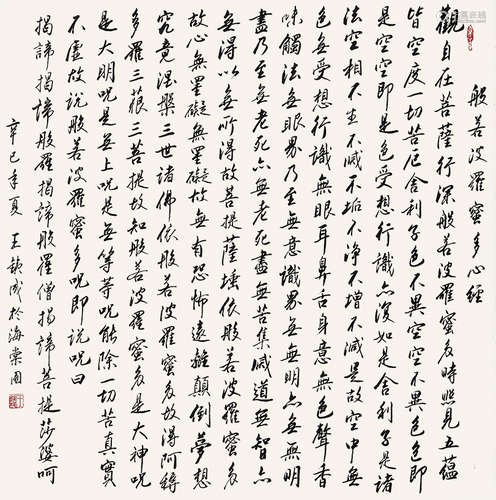 般若波羅蜜多心經
觀自在菩薩行深般若波羅蜜多時照見五蘊
皆空度一切苦厄舍利子色不異空空不異色色即
是空空即是色受想行識亦復如是舍利子是諸
法空相不生不滅不垢不淨不增不減是故空中無
色無受想行識無眼耳鼻舌身意無色聲香
味觸法無眼界乃至無意識界無無明亦無無明
盡乃至無老死亦無老死盡無苦集滅道無智亦
無得以無所得故菩提薩埵依般若波羅蜜多
故心無罣礙無罣礙故無有恐怖遠離顛倒夢想
究竟涅槃三世諸佛依般若波羅蜜多故得阿耨
多羅三藐三菩提故知般若波羅蜜多是大神呪
是大明呪是無上呪是無等等呪能除一切苦真實
不虛故說般若波羅蜜多呪即說呪曰
揭諦揭諦般羅揭諦般羅僧揭諦菩提莎婆呵
辛巳年夏王欽成於海棠園